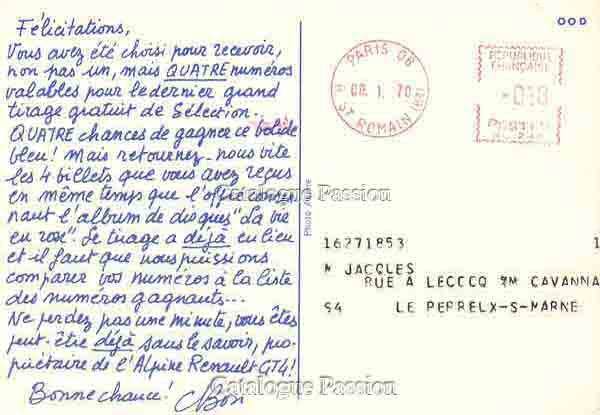 Félicitations,
Vous avez été choisi pour recevoir,
non pas un, mais QUATRE numéros
valables pour le dernier grand
tirage gratuit de Sélection.
QUATRE chances de gagner ce bolide
bleu! Mais retournez-nous vite
les 4 billets que vous avez reçus
en même temps que l'offre concer-
nant l'album de disques "La vie
en rose". Le tirage a déjà eu lieu
et il faut que nous puissions
comparer vos numéros à la liste
des numéros gagnants...
Ne perdez pas une minute, vous êtes
peut-être déjà sans le savoir, pro-
priétaire de l'Alpine Renault GT4!
Bonne chance!
Photo
PARIS 08
08. 1. 70
R. ST ROMAIN (8e)
REPUBLIQUE
FRANÇAISE
POSTES
16271853 1
M JACQUES
RUE A LECCCQ
CAVANNA
94 LE PERREUX-S-MARNE
Catalogue Passion
Catalogue Passion